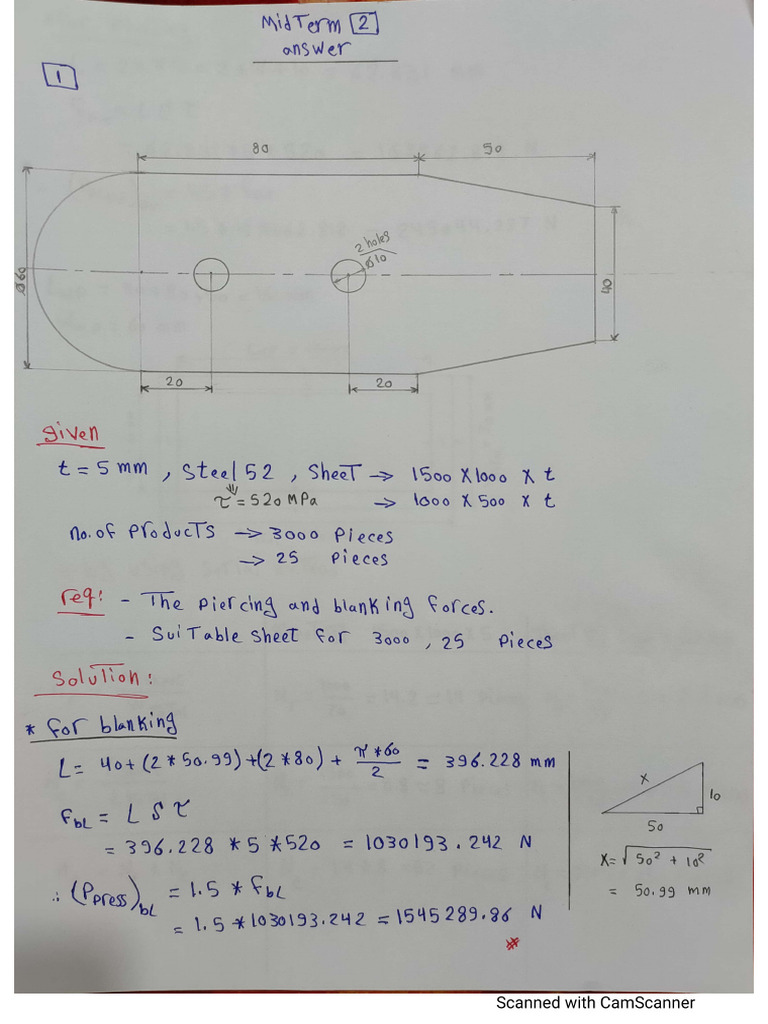 MidTerm 2
answer
1
80
50
2 holes
ø10
ø60
40
20
20
given
t = 5 mm , Steel 52 , Sheet → 1500 X 1000 X t
τ = 520 MPa → 1000 X 500 X t
no. of Products → 3000 Pieces
→ 25 Pieces
req: - The Piercing and blanking forces.
- Suitable sheet for 3000 , 25 Pieces
Solution:
* for blanking
L = 40 + (2 * 50.99) + (2 * 80) + π*60/2 = 396.228 mm
x
10
50
F_bL = L S τ
= 396.228 * 5 * 520 = 1030193.242 N
x = √50² + 10²
= 50.99 mm
∴ (P_press)_bL = 1.5 * F_bL
= 1.5 * 1030193.242 = 1545289.86 N
*
Scanned with CamScanner